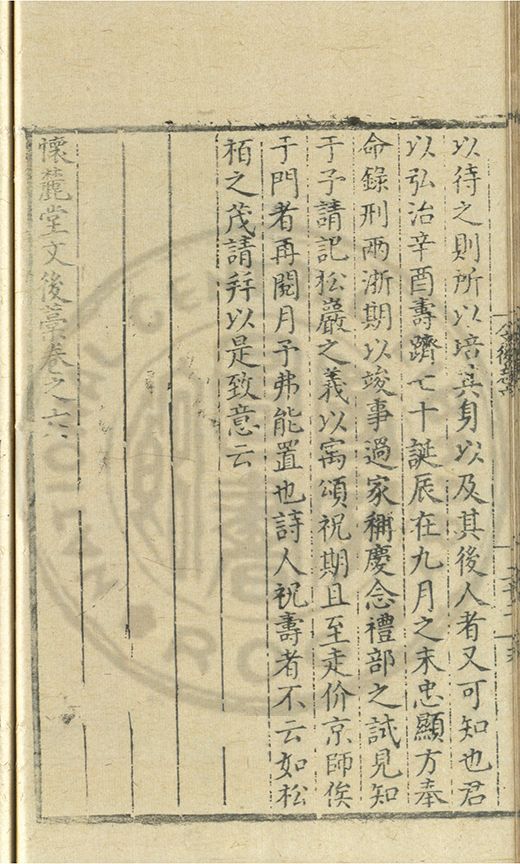 以待之則所以培其身以及其後人者又可知也君
以弘治辛酉壽躋七十誕辰在九月之末忠顯方奉
命錄刑兩浙期以竣事過家稱慶念禮部之試見知
于予請記松巖之義以寓頌祝期且至走价京師俟
于門者再閱月予弗能置也詩人祝壽者不云如松
栢之茂請拜以是致意云
懷麓堂文後藁卷之六